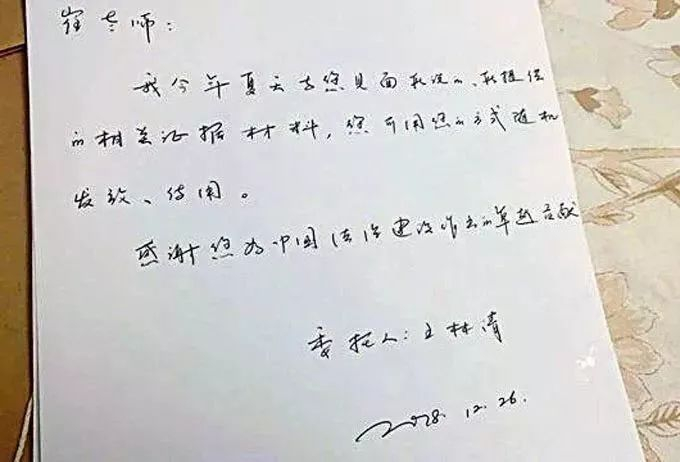 崔老师：
我今年夏天与您见面所说的、所提供
的相关证据材料，您可用您的方式随机
发放、使用。
感谢您为中国法治建设作出的卓越贡献
委托人：王林清
2018.12.26.